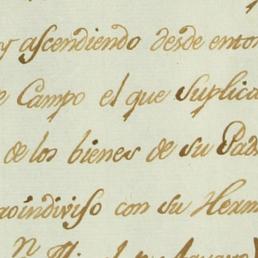 y ascendiendo desde enton
e Campo el que Suplica
de los bienes de su Pad
oindiviso con su Herm